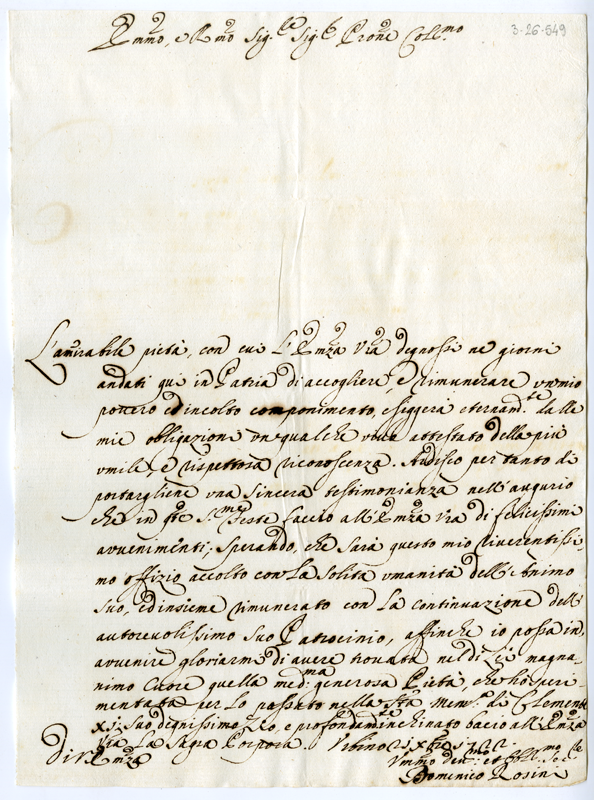 Emmo, e Rmo Sig.re Sig.r e Prone Colmo
3-26-549
L'amirabile pietà, con cui L'Emza Vra degnossi ne giorni
andati quì in Patria di accogliere, e rimunerare un mio
povero ed incolto componimento, esiggerà eternamte dalle
mie obligazioni un qualche vivo attestato della più
umile, e rispettosa riconoscenza. Ardisco per tanto di
portargliene una sincera testimonianza nell'augurio
che in qte S.me Feste faccio all'Emza Vra di felicissimi
avvenimenti, sperando, che sarà questo mio riverentissi-
mo offizio accolto con La solita umanità dell'Animo
suo, ed insieme rimunerato con La continuazione dell'
autorevolissimo suo Patrocinio, affinche io possa in
avvenire gloriarmi di avere trovata nel di Lei magna-
nimo Cuore quella medma generosa Pietà, che hò speri
mentata per lo passato nella Sta Mema di Clemente
XI: suo degnissimo Zio, e profondamte inchinato bacio all'Emza
Vra La Sagra Porpora. Urbino
di V. Emza
Ummo
Domenico Rosini